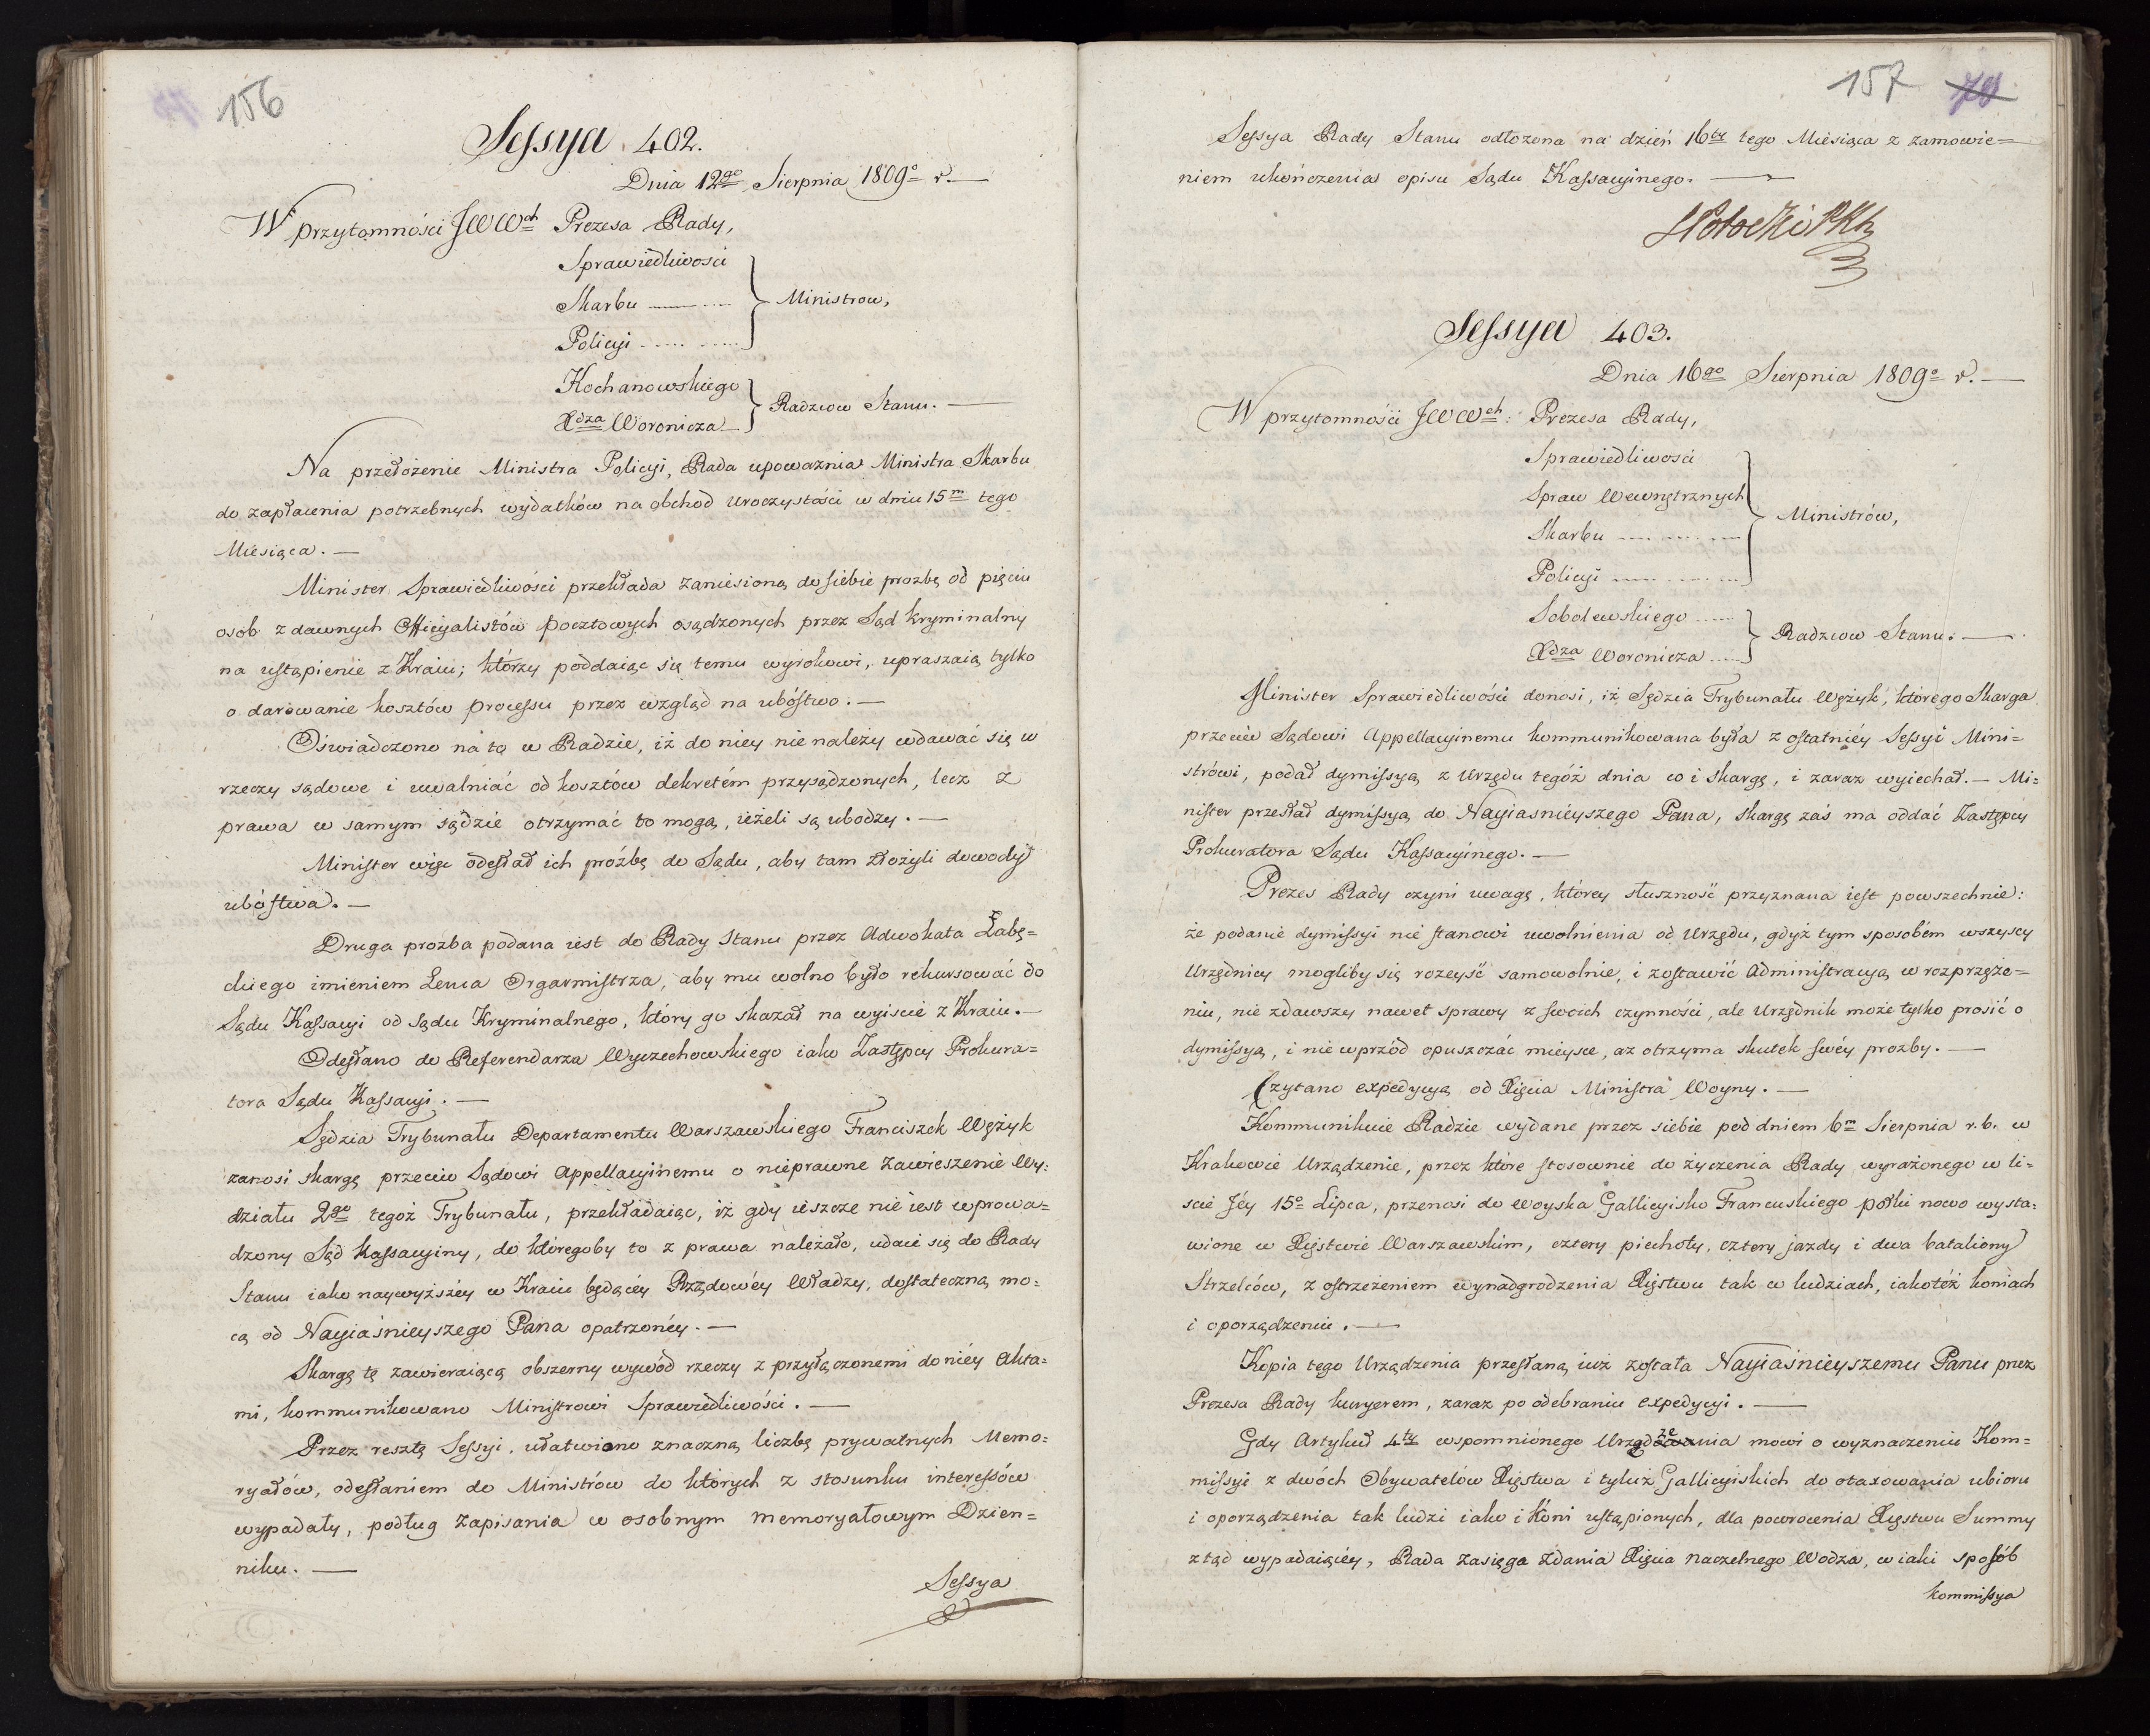 156
Sessya 402.
Dnia 12go Sierpnia 1809o r. —
W przytomności JWWch Prezesa Rady,
Sprawiedliwości
Skarbu
Policyi
Ministrow,
Kochanowskiego
Xdza Woronicza
Radzcow Stanu. —
Na przełożenie Ministra Policyi, Rada upoważnia Ministra Skarbu
do zapłacenia potrzebnych wydatków na obchod Uroczystości w dniu 15m tego
Miesiąca. —
Minister Sprawiedliwości przekłada zaniesioną do siebie prozbę od pięciu
osob z dawnych Officyalistów pocztowych osądzonych przez Sąd Kryminalny
na ustąpienie z Kraiu; którzy poddaiąc się temu wyrokowi, upraszaią tylko
o darowanie kosztów processu przez wzgląd na ubóstwo. —
Oświadczono na to w Radzie, iż do niey nie należy wdawać się w
rzeczy sądowe i uwalniać od kosztów dekretém przysądzonych, lecz z
prawa w samym sądzie otrzymać to mogą, ieżeli są ubodzy. —
Minister więc odesłał ich próźbę do Sądu, aby tam złożyli dowody
ubóstwa. —
Druga prozba podana iest do Rady Stanu przez Adwokata Łabę=
ckiego imieniem Lema Orgarmistrza, aby mu wolno było rekursować do
Sądu Kassacyi od Sądu Kryminalnego, który go skazał na wyiscie z Kraiu. —
Odesłano do Referendarza Wyczechowskiego iako Zastępcy Prokura=
tora Sądu Kassacyi. —
Sędzia Trybunału Departamentu Warszawskiego Franciszek Wężyk
zanosi skargę przeciw Sądowi Appellacyinemu o nieprawne zawieszenie Wy=
działu 2go tegoż Trybunału, przekładaiąc, iż gdy ieszcze nie iest wprowa=
dzony Sąd Kassacyiny, do któregoby to z prawa należało, udaie się do Rady
Stanu iako naywyższéy w Kraiu będącéy Rządowéy Władzy, dostateczną mo=
cą od Nayiaśnieyszego Pana opatrzonéy. —
Skargę tę zawieraiącą obszerny wywód rzeczy z przyłączonemi do niéy Akta=
mi, kommunikowano Ministrowi Sprawiedliwości. —
Przez resztę Sessyi, ułatwiono znaczną liczbę prywatnych Memo=
ryałów, odesłaniem do Ministrów do których z stosunku interessów
wypadały, podług zapisania w osobnym memoryałowym Dzien=
niku. —
Sessya
157 79
Sessya Rady Stanu odłożona na dzień 16ty tego Miesiąca z zamowie=
niem ukończenia opisu Sądu Kassacyinego. —
Sessya 403.
Dnia 16go Sierpnia 1809o r. —
W przytomności JWWch: Prezesa Rady,
Sprawiedliwości
Spraw Wewnętrznych
Skarbu
Policyi
Ministrów,
Sobolewskiego
Xdza Woronicza
Radzcow Stanu. —
Minister Sprawiedliwości donosi, iż Sędzia Trybunału Wężyk, którego Skarga
przeciw Sądowi Appellacyinemu kommunikowana była z ostatniéy Sessyi Mini=
strówi, podał dymissyą z Urzędu tegóż dnia co i skargę, i zaraz wyiechał. — Mi=
nister przesłał dymissyą do Nayiasnieyszego Pana, skargę zaś ma oddać Zastępcy
Prokuratora Sądu Kassacyinego. —
Prezes Rady czyni uwagę, którey słuszność przyznana iest powszechnie:
że podanie dymissyi nie stanowi uwolnienia od Urzędu, gdyż tym sposobém wszyscy
Urzędnicy mogliby się rozeyść samowolnie, i zostawić Administracyą w rozprzęże=
niu, nie zdawszy nawet sprawy z swoich czynności, ale Urzędnik może tylko prosić o
dymissyą, i nie wprzód opuszczać mieysce, aż otrzyma skutek swéy prozby. —
Czytano expedycyą od Xięcia Ministra Woyny. —
Kommunikuie Radzie wydane przez siebie pod dniem 6m Sierpnia r. b. w
Krakowie Urządzenie, przez które stosownie do życzenia Rady wyrażonego w li=
scie Jéy 15o Lipca, przenosi do Woyska Gallicyisko Francuskiego połki nowo wysta=
wione w Xięstwie Warszawskim, cztery piechoty, cztery jazdy i dwa bataliony
Strzelców, z ostrzeżeniem wynadgrodzenia Xięstwu tak w ludziach, iakotéż koniach
i oporządzeniu. —
Kopia tego Urządzenia przesłaną iuż została Nayiaśnieyszemu Panu przez
Prezesa Rady kuryerem, zaraz po odebraniu expedycyi. —
Gdy Artykuł 4ty wspomnionego Urządzenia mowi o wyznaczeniu Kom=
missyi z dwóch Obywatelów Xięstwa i tyluż Gallicyiskich do otaxowania ubioru
i oporządzenia tak ludzi iako i Kóni ustąpionych, dla powrocenia Xięstwu Summy
ztąd wypadaiącéy, Rada zasięga zdania Xięcia naczelnego Wodza, w iaki sposób
kommissya